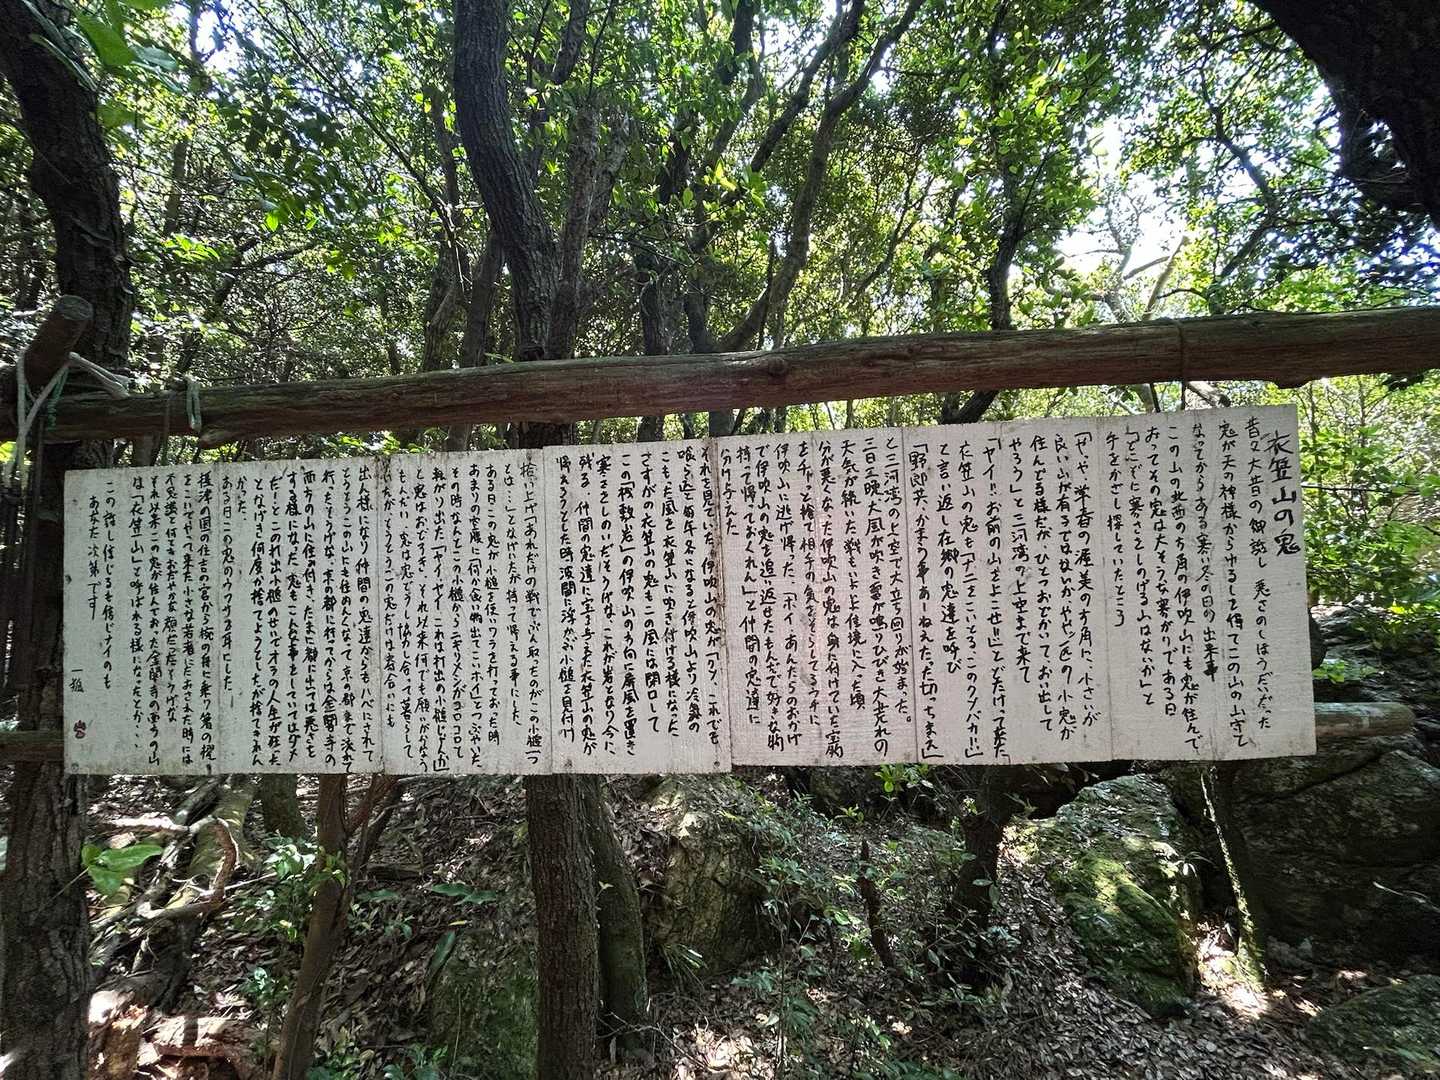 衣笠山の鬼
昔々大昔の御話し 悪さのしほうだいだった
鬼が天の神様からゆるしを得てこの山の山守と
なってからある寒い冬の日の出来事
この山の北西のち角の伊吹山にも鬼が住んで
おってその鬼は大そうな寒がりである日
「どこぞに寒さをしのげる山はないか」と
手をかざし探していたところ
「やゃや 常春の渥美の方角に、小さいが
良い山が有るではないか ややッ一匹の小鬼が
住んでる様だが、ひとつおどかいて、おい出して
やろう」と三河湾の上空まで来て
「ヤイ!!お前の山をよこせ!!」とどなたけって来た
衣笠山の鬼も「ナニをこいとるこのクソバカ!!」
と言い返し在郷の鬼達を呼び
「野郎共、かまう事あーねえたった切っちまえ」
と三河湾の上空で大立ち回りが始まった。
三日三晩大風が吹き雷が鳴りひびき大荒れの
天気が続いた戦もいよいよ佳境に入った頃
分が悪くなった伊吹山の鬼は身に付けていた宝物
をチャッと捨て相手の気をそらしてるウチに
伊吹山に逃げ帰った「ホイ あんたらのおかげ
で伊吹山の鬼を追い返せたもんだで好きな物
持って帰っておくれん」と仲間の鬼達に
分け与えた
それを見ていた。伊吹山の鬼が「クソ、これでも
喰らえ」と毎年冬になると伊吹山より冷気の
こもった風を衣笠山に吹き付ける様になった
さすがの衣笠山の鬼もこの風には閉口して
この「桟敷岩」の伊吹山の方向に屏風を置き
寒さをしのいだそうげな、これが岩となり今に
残る、仲間の鬼達に宝を与えた衣笠山の鬼が
帰ぇろうとした時波間に浮かぶ小槌を見付け
拾い上げ「あれだけの戦でぶん取ったのがこの小槌一つ
とは…」となげいたが持って帰ぇる事にした、
ある日この鬼が小槌を使いワラを打っておった時
あまりの空腹に何か食い物出てこいホイ」とつぶやいた
その時なんとこの小槌からニギリメシがコロコロと
転がり出た「ヤイヤイこれは打出の小槌じゃんか」
と鬼はおどろき、それ以来何でも願いがかなう
もんだい、鬼は鬼どうし協力し合って暮らして
いたが、とうとうこの鬼だけは若合いにも
出ん様になり仲間の鬼達からもハバにされて
とうとうこの山にも住めなくなって、京の都まで流れて
行ったそうげな、京の都に行ってからは金閣寺の
西方の山に住み付き、たまに都に出ては悪さを
する様になった 鬼もこんな事をしていてはダメ
だーとこの打出小槌のせいでオラの人生が狂った
となげき何度か捨てようとしたが捨てきれん
かった、
ある日この鬼のウワサを耳にした
摂津の国の住吉の宮から椀の舟に乗り箸の櫂
をこいでやって来た小さな若者にたおされた時には
不思議と何ともおだやかな顔だったそうげな
それ以来この鬼が住んでおった金閣寺の西方の山
は「衣笠山」と呼ばれる様になったとか・・・
この話し信じるも信じナイのも
あなた次第です